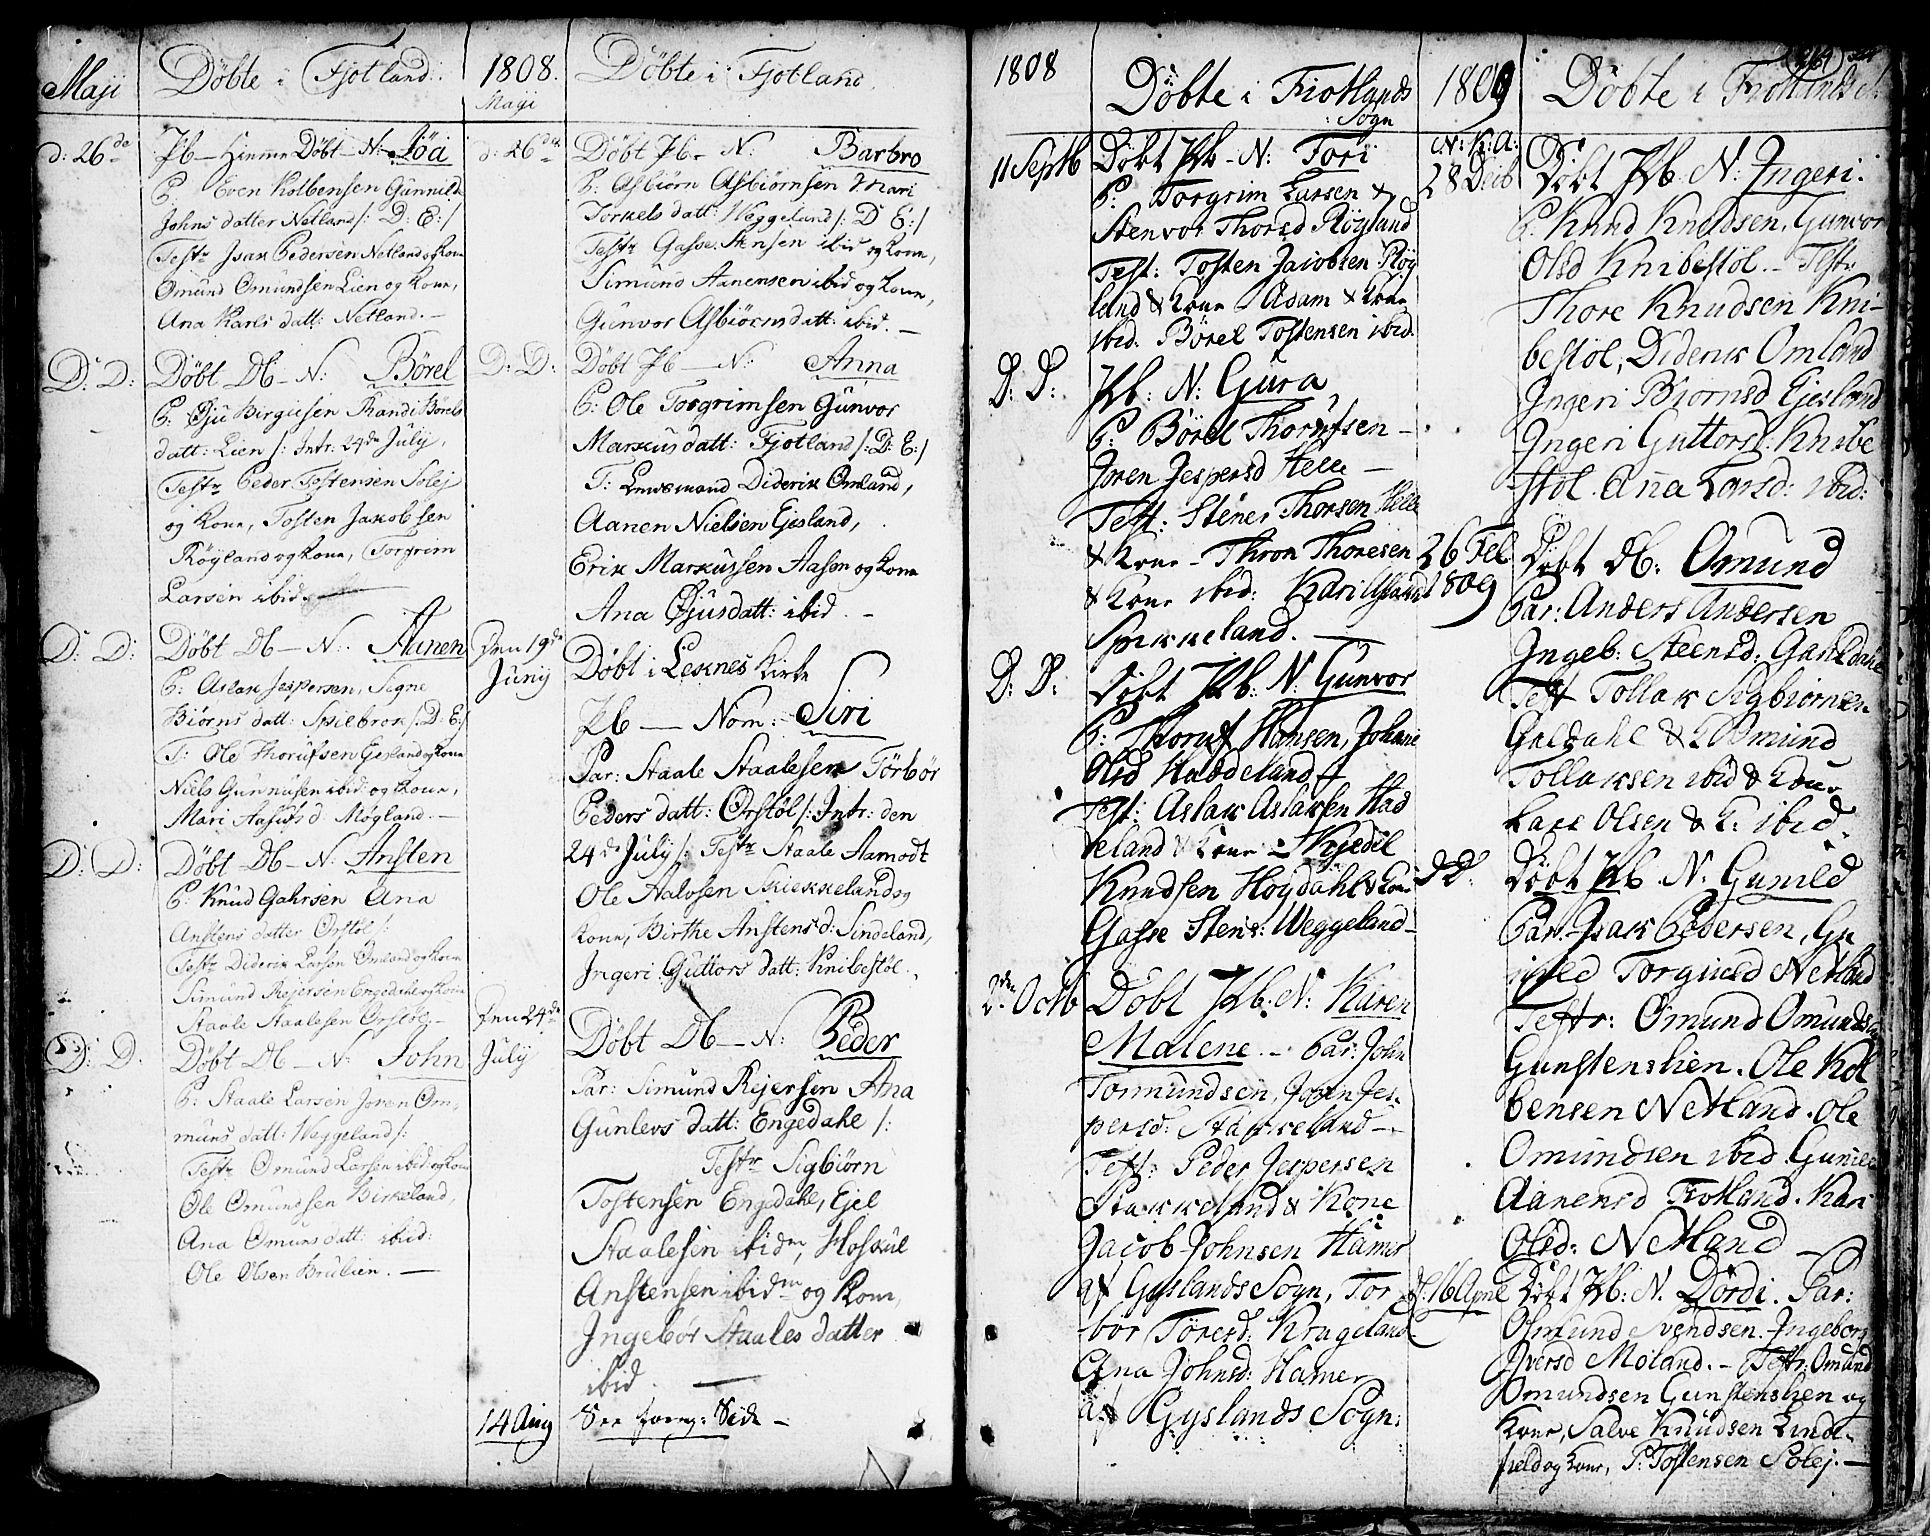 Maji
Döbte i Fjotland.
d: 26de
Pb – Hiemme Döbt – N: Löa
P: Even Kolbensen Gunnild
Johns datter Netland /: D: E: /
Testr Isak Pedersen Netland og Kone
Omund Omundsen Lien og Kone,
Ana Karls datt: Netland. –
D: D:
Döbt Db – N: Börel
P: Gju Birgusen Randi Börels
datt: Lien /: Intr. 24de July,
Testr Peder Tostensen Solej
og Kone, Tosten Jakobsen
Röyland og Kone, Torgrim
Larsen ibid. –
D: D:
Döbt Db – N: Aanen
P: Aslak Jespersen, Signe
Biörns datt: Skiebrok /: D: E: /
T: Ole Thorufsen Gesland og Kone
Niels Gunnufsen ibid: og Kone,
Mari Aasufs d: Mögland. –
D: D:
Döbt Db – N: Ansten
P: Knud Gahrsen Ana
Anstens datter Örstöl /:
Testr Diderik Larsen Omland og Kone
Simund Rejersen Engedahl og Kone
Staale Staalesen Örstöl. –
D: D.
Döbt Db – N: John
P: Staale Larsen Joren Om-
muns datt: Weggeland /:
Testr Omund Larsen ibid og Kone
Ole Omundsen Birkeland,
Ana Omuns datt: ibid:
Ole Olsen Brulien. –
1808.
Maji
Döbte i Fjotland.
d: 26de
Döbt Pb – N: Barbro
P: Asbiörn Asbiörnsen Mari
Torkels datt: Weggeland /: D E: /
Testr Gasse Stensen ibid og Kone,
Simund Aanensen ibid og Kone,
Gunvor Asbiörns datt: ibid. –
D: D:
Döbt Pb – N: Anna
P: Ole Torgrimsen Gunvor
Markus datt: Fjotland /: D: E: /
T: Lensmand Diderik Omland,
Aanen Nielsen Gjesland,
Erik Markussen Aasen og Kone
Ana Gjusdatt: ibid. –
Den 19de
Junij
Döbt i Leknes Kirke
Pb – Nom: Siri
Par: Staale Staalesen Törbör
Peders datt: Örstöl /: Intr: den
24de July /: Testr Staale Aamodt
Ole Aalosen Skiekkeland og
Kone, Birthe Anstens d: Sindeland,
Ingeri Guttors datt: Knibestöl.
Den 24de
Julij
Döbt Db – N: Peder
Par: Simund Rejersen Ana
Gunlevs datt: Engedahl /:
Testr Sigbiörn
Tostensen Engedahl, Ejel
Staalesen ibidm, Hoskul
Anstensen ibidm og Kone,
Ingebör Staales datter
ibid. –
14 Aug
See forrig: Side –
1808
Döbte i Fiotlands
Sogn
11 Septb
Döbt Pb – N: Tori
P: Torgrim Larsen &
Stenvor Thorsd Röyland
Test: Tosten Jacobsen Röy
land & Kone Adam & Kone
ibid. Börel Tostensen ibid.
D: D:
Pb: N: Gura
P: Börel Thorufsen –
Joren Jespersd Helle –
Test: Stener Thorsen Helle
& Kone – Thron Thoresen
& Kone ibid: Kari
Spikkeland. –
D: D:
Döbt Pb: N: Gunvor
P: Thoruf Hansen, Johane
Olsd Haddeland
Test: Aslak Aslaksen Had
deland & Kone – Kjedil
Knudsen Hoydahl & Kone
Gasse Stens: Weggeland –
2den Octb
Döbt Pb: N: Karen
Malene. – Par: John
Tormundsen, Joren Jes-
persd: Stakkeland –
Test: Peder Jespersen
Stakkeland & Kone
Jacob Johnsen Hamer
af Gyslands Sogn, Tor
bor Töresd: Krageland –
Ana Johnsd: Hamer
af Gyslands Sogn:
1809
Döbte i Fiotlands
N: K: A:
28 Decb
Döbt Pb. N: Ingeri.
P. Knud Knudsen, Gunvor
Olsd Knibestöl. – Testr
Thore Knudsen Kni-
bestöl, Diderik Omland
Ingeri Biornsd Ejesland
Ingeri Guttorsd: Knibe
stöl. Ana Larsd: ibid:
26 Feb
1809
Döbt Db: Omund
Par: Anders Andersen
Ingeb: Steensd: Galdahl
Test Tollak Sigbiornsen
Galdahl & Omund
Tollaksen ibid & Kone
Lars Olsen & K: ibid.
D D:
Döbt Pb N: Gunild
Par: Isak Pedersen, Gu
nild Torgiusd Netland
Testr: Omund Omundsen
Gunstenslien. Ole Kol
bensen Netland. Ole
Omundsen ibid. Gunild
Aanensd Fiotland. Kari
Olsd: Netland –
D: 16 April
Döbt Pb: N. Dördi. Par:
Osmund Svendsen. Ingeborg
Iversd Moland. – Testr: Omund
Omundsen Gunstenslien og
Kone, Salve Knudsen Linde-
field og Kone, P: Tostensen Solej. –